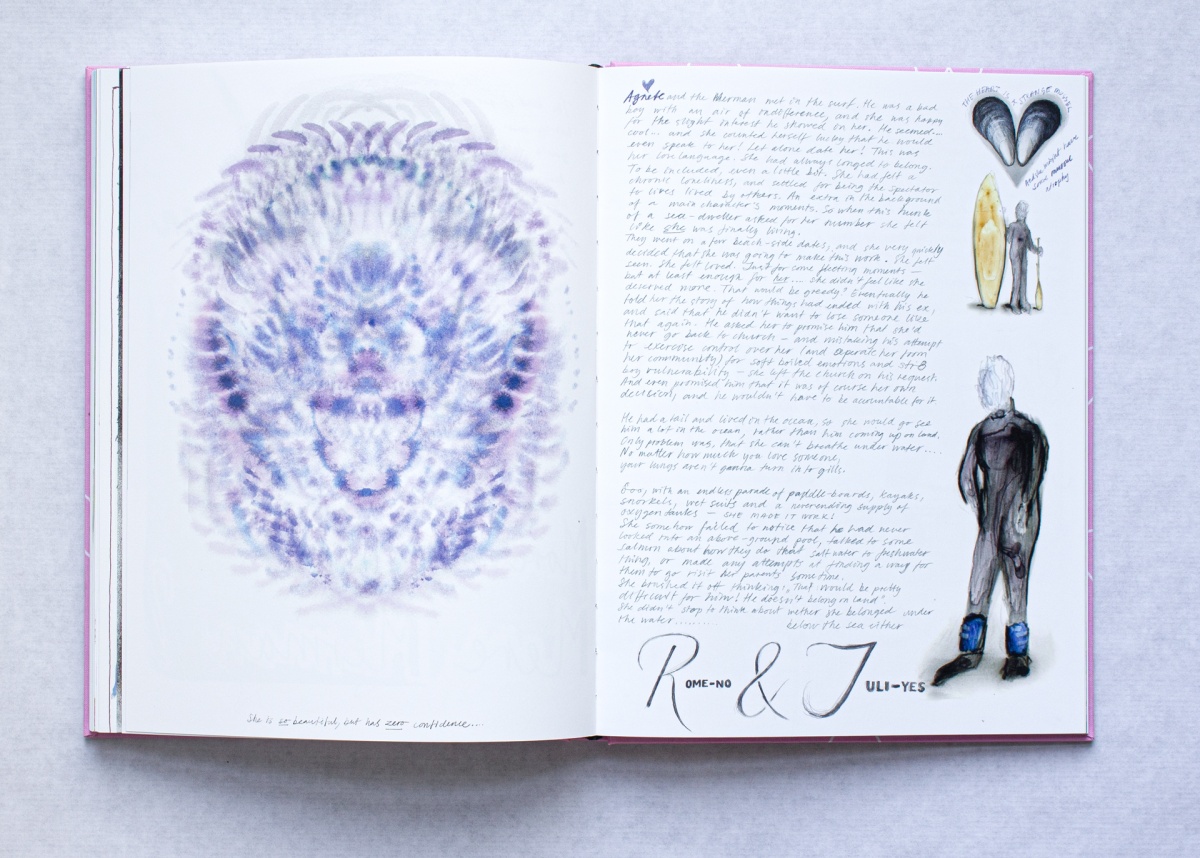 She is so beautiful, but has zero confidence....
Agnete and the Merman met in the surf. He was a bad
boy with an air of indifference, and she was happy
for the slight interest he showed on her. He seemed...
cool... and she counted herself lucky that he would
even speak to her! Let alone date her! This was
her love language. She had always longed to belong.
To be included, even a little bit. She had felt a
chronic loneliness, and settled for being the spectator
to lives lived by others. An extra in the background
of a main character's moments. So when this hunk
of a sea-dweller asked for her number she felt
like she was finally living.
They went on a few beach-side dates, and she very quickly
decided that she was going to make this work. She felt
seen. She felt loved. Just for some fleeting moments —
but at least enough for her.... She didn't feel like she
deserved more. That would be greedy? Eventually he
told her the story of how things had ended with his ex,
and said that he didn't want to lose someone like
that again. He asked her to promise him that she'd
never go back to church — and mistaking his attempt
to exercise control over her (and separate her from
her community) for soft boiled emotions and str8
boy vulnerability — she left the church on his request.
And even promised him that it was of course her own
decision, and he wouldn't have to be accountable for it
He had a tail and lived on the ocean, so she would go see
him a lot in the ocean, rather than him coming up on land.
Only problem was, that she can't breathe under water....
No matter how much you love someone,
your lungs aren't gonna turn into gills.
Soo, with an endless parade of paddle-boards, kayaks,
snorkels, wet suits and a neverending supply of
oxygen tanks — SHE MADE IT WORK!
She somehow failed to notice that he had never
looked into an above-ground pool, talked to some
salmon about how they do that saltwater to freshwater
thing, or made any attempts at finding a way for
them to go visit her parents sometime.
She brushed it off thinking, "That would be pretty
difficult for him! He doesn't belong on land"
She didn't stop to think about wether she belonged under
the water.......... below the sea either
ROME-NO & JULI-YES
THE HEART IS A STRANGE MUSCLE
And he might have
some muscle
atrophy